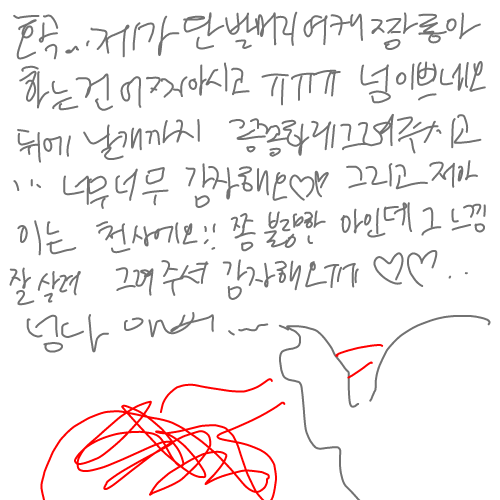 헉... 제가 단발머리 어케 짱 좋아
하는건 어찌아시고 ㅠㅠㅠ 넘 이쁘네요
뒤에 날개까지 그려주시고
... 너무너무 감쟈해요♡♡ 그리고 제아
이는 천사에요!! 쫌 불량한 아인데 그 느낌
잘 살려 그여주셔 감쟈해요ㅠㅠ ♡♡..
넘나